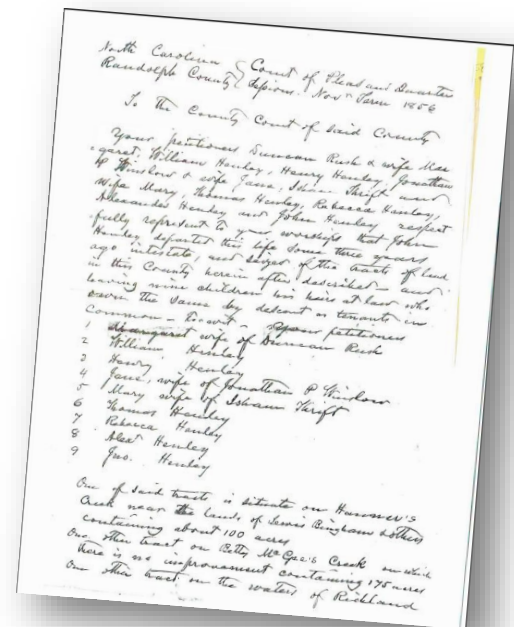 North Carolina } Court of Pleas and Quarter
Randolph County } Sessions. Nov Term 1856
To the County Court of said County
Your petitioners Duncan Rush & wife Mar
garet, William Henley, Henry Henley, Jonathan
P Winslow & wife Jane, Isham Thrift and
wife Mary, Thomas Henley, Rebecca Henley,
Alexander Henley and John Henley, respect
fully represent to your worships that John
Henley departed this life some three years
ago intestate, and seized of the tracts of land
in this County herein after described - and
leaving nine children his heirs at law who
own the same by descent as tenants in
Common - to-wit - your petitioners
1 Margaret wife of Duncan Rush
2 William Henley
3 Henry Henley
4 Jane, wife of Jonathan P Winslow
5 Mary wife of Isham Thrift
6 Thomas Henley
7 Rebecca Henley
8 Alexr Henley
9 Jno. Henley
One of said tracts is situate on Hammer's
Creek near the lands of Lewis Bingham & others
containing about 100 acres
One other tract on Betty McGee's Creek on which
there is no improvement containing 175 acres
One other tract on the waters of Richland